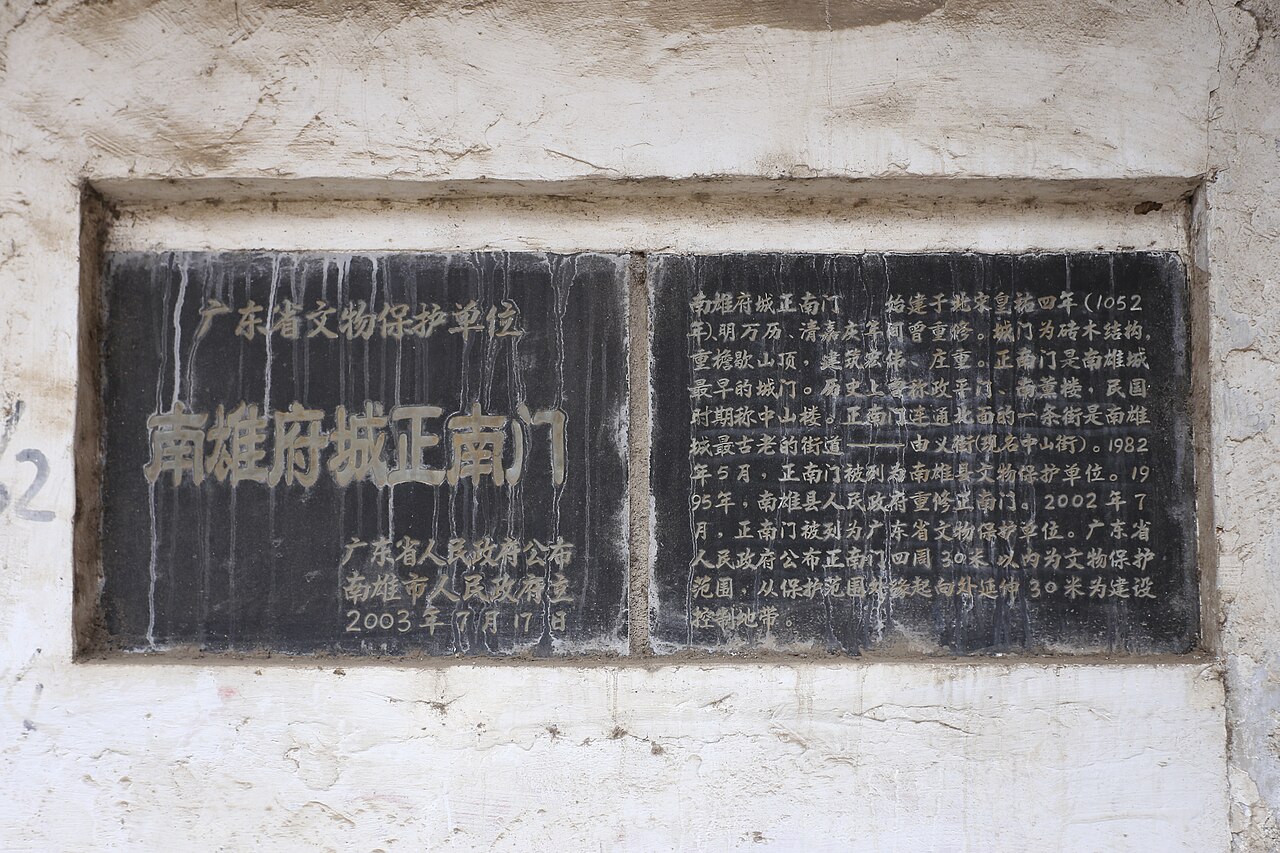 广东省文物保护单位
南雄府城正南门
广东省人民政府公布
南雄市人民政府立
2003年7月17日
南雄府城正南门 始建于北宋皇祐四年(1052
年)明万历、清嘉庆年间曾重修。城门为砖木结构,
重檐歇山顶,建筑宏伟、庄重。正南门是南雄城
最早的城门。历史上曾称政平门、南薰楼,民国
时期称中山楼。正南门连通北面的一条街是南雄
城最古老的街道——由义街(现名中山街)。1982
年5月,正南门被列为南雄县文物保护单位。19
95年,南雄县人民政府重修正南门。2002年7
月,正南门被列为广东省文物保护单位。广东省
人民政府公布正南门四周30米以内为文物保护
范围,从保护范围外缘起向外延伸30米为建设
控制地带。
52